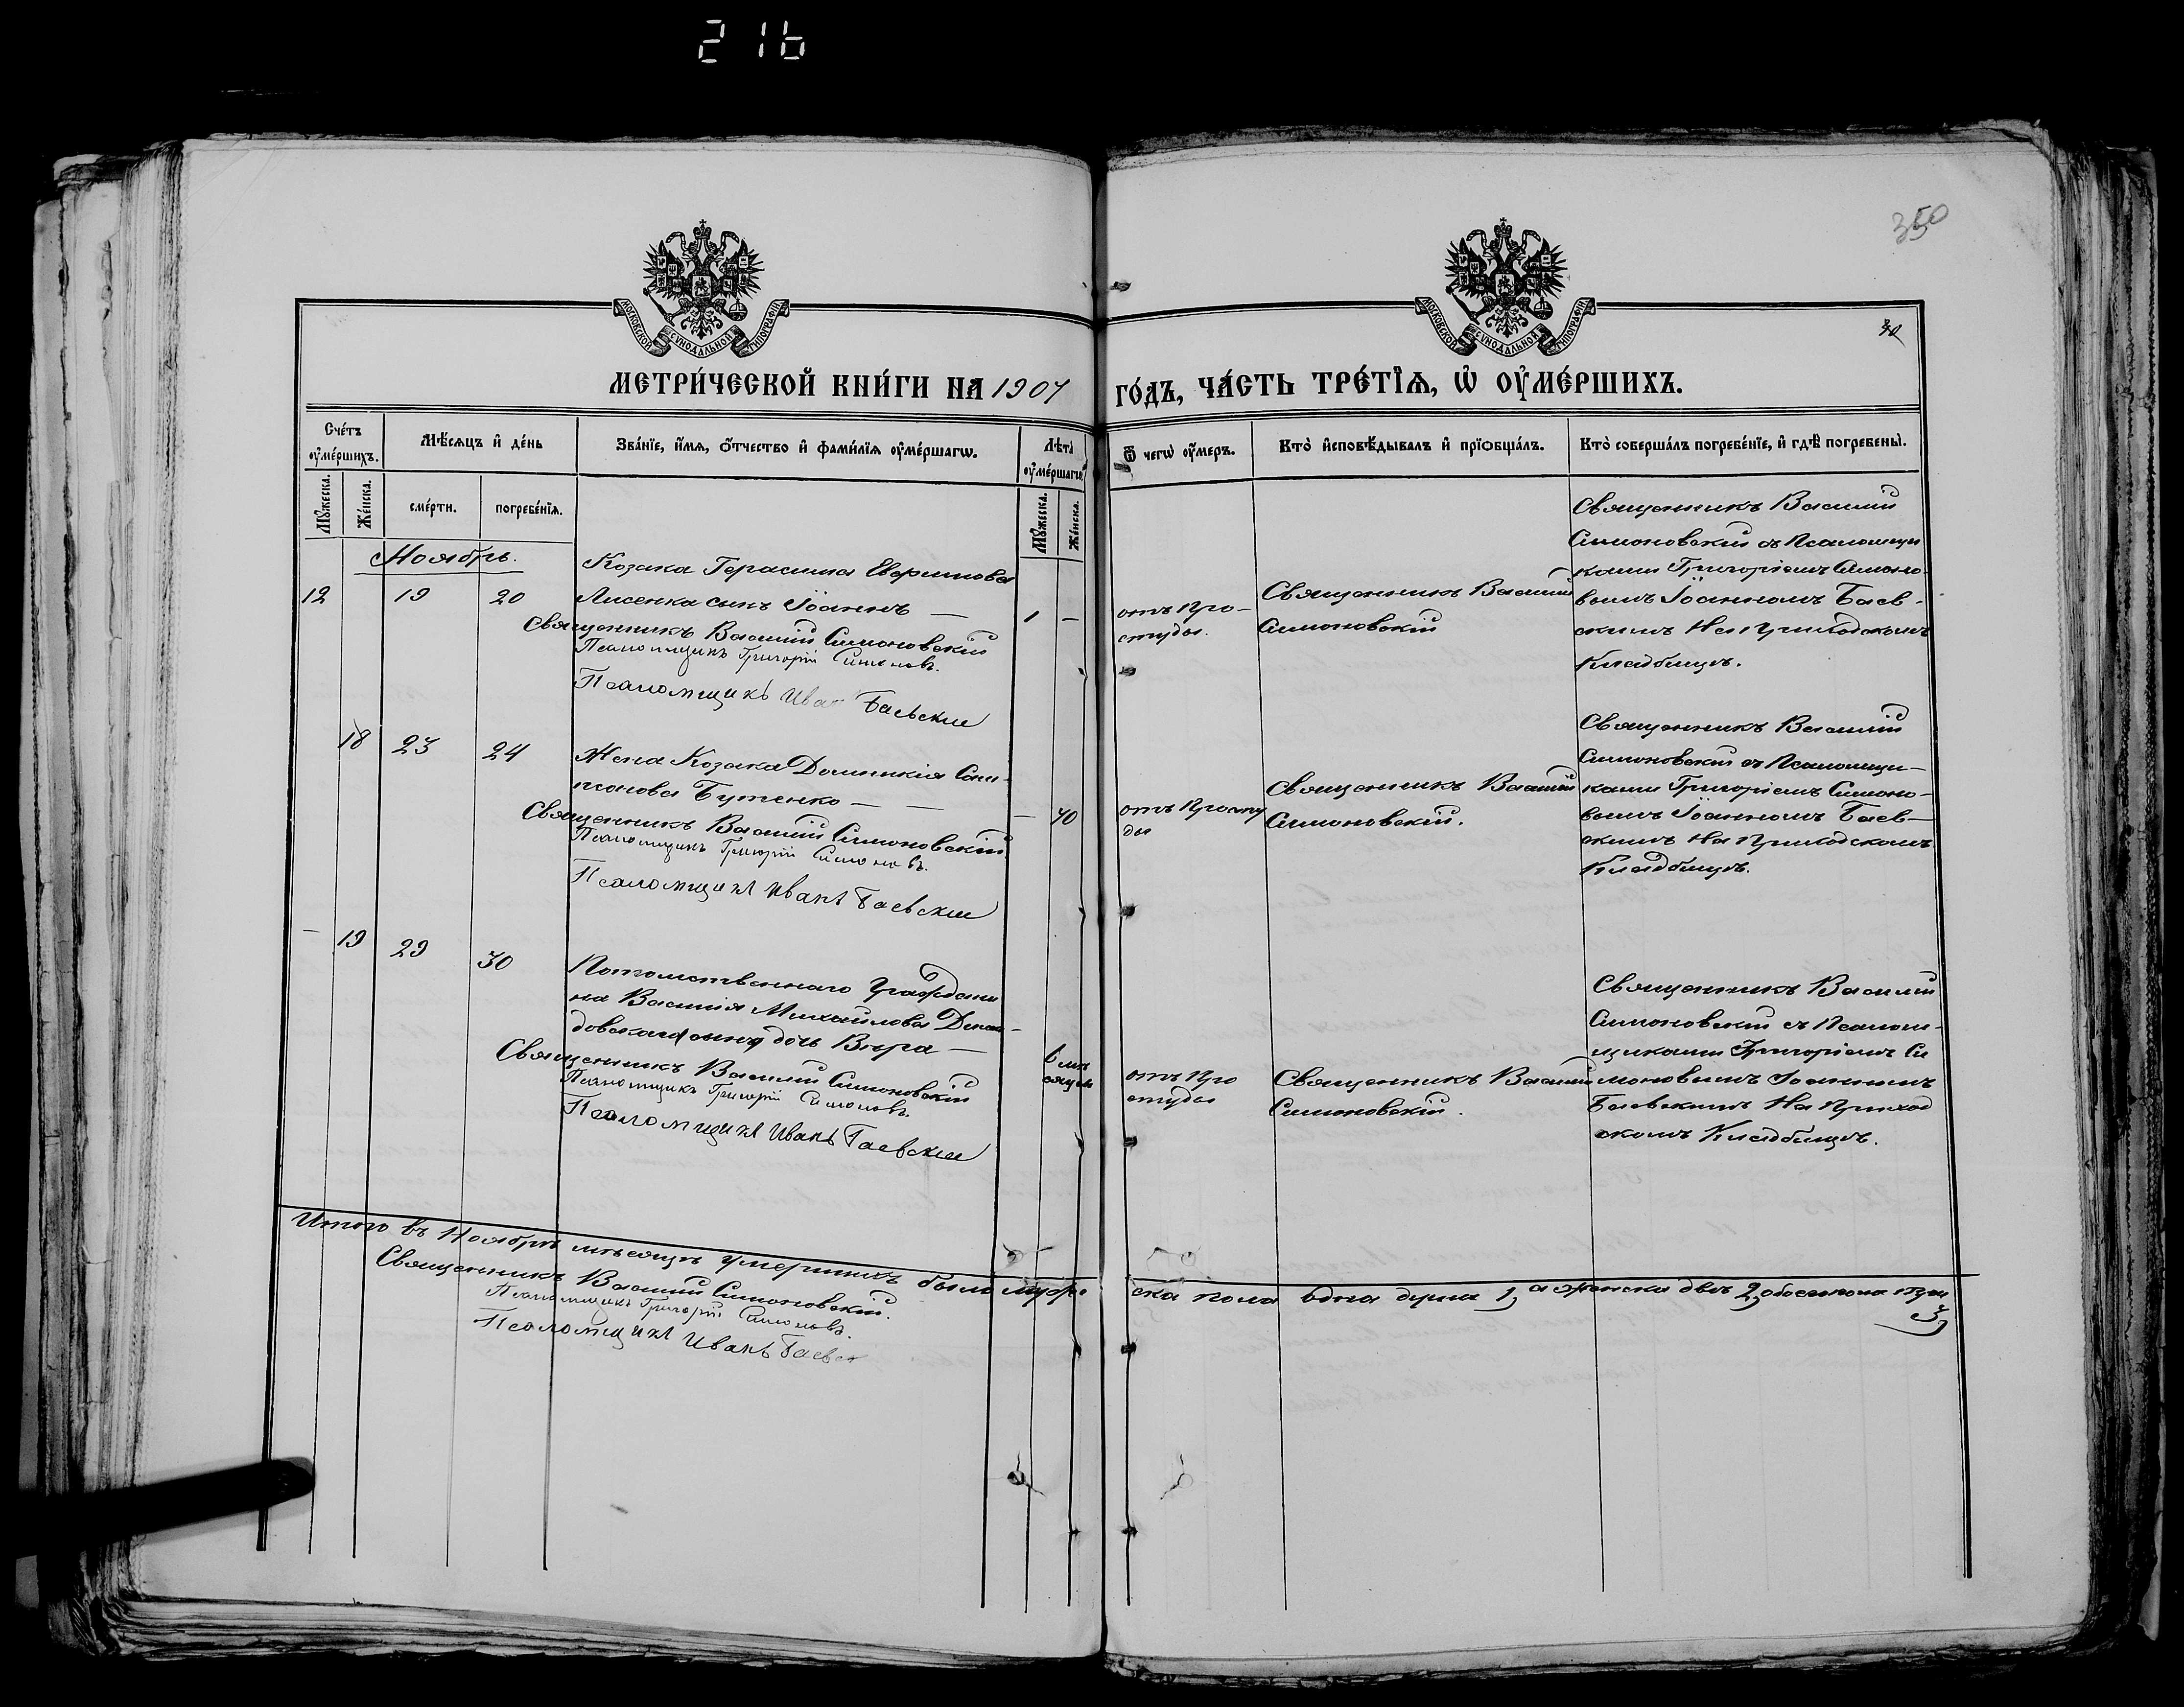 216
350
МОСКОВСКОЙ СѴНОДАЛЬНОЙ ТИПОГРАФІИ
МОСКОВСКОЙ СѴНОДАЛЬНОЙ ТИПОГРАФІИ
МЕТРИ́ЧЕСКОЙ КНИ́ГИ НА 1907
ГО́ДЪ, ЧА́СТЬ ТРЕ́ТІѦ, Ѡ҆ ОУ҆МЕ́РШИХЪ.
Сче́тъ оу҆ме́ршихъ.
Мѣ́сѧцъ и҆ де́нь
Зва́нїе, и҆́мѧ, ѻ҆́тчество и҆ фами́лїѧ оу҆ме́ршагѡ.
Лѣта̀ оу҆ме́ршагѡ
Ѿ чегѡ̀ оу҆́меръ.
Кто̀ и҆сповѣ́дывалъ и҆ прїѡбща́лъ.
Кто̀ соверша́лъ погребе́нїе, и҆ гдѣ̀ погребены̀.
Мꙋ́жеска.
Же́нска.
сме́рти.
погребе́нїѧ.
Мꙋ́жеска.
Же́нска.
Ноябрь.
12 19 20
Козака Герасима Евфимова
Лисенка сынъ Іоаннъ —
Священникъ Василій Симоновскій
Псаломщикъ Григорій Симоновъ.
Псаломщикъ Иван Баевскіи
1 —
отъ Про-
студы.
Священникъ Василій
Симоновскій
Священникъ Василій
Симоновскій съ Псаломщи
ками Григоріемъ Симоно-
вымъ Іоанномъ Баев-
скимъ На Приходскомъ
Кладбищѣ.
18 23 24
Жена Козака Домникія
Бутенко — —
Священникъ Василій Симоновскій
Псаломщикъ Григорій Симоновъ.
Псаломщикъ Иванъ Баевскіи
— 40
отъ Просту
ды
Священникъ Василій
Симоновскій.
Священникъ Василій
Симоновскій съ Псаломщи-
ками Григоріемъ Симоно-
вымъ Іоанномъ Баев-
скимъ На Приходскомъ
Кладбищѣ.
— 19 29 30
Потомственнаго Граждани
на Василія Михайлова
дочь Вѣра —
Священникъ Василій Симоновскій
Псаломщикъ Григорій Симоновъ.
Псаломщикъ Иванъ Баевскіи
6 мѣ
сяцы
отъ Про
студы
Священникъ Василій
Симоновскій.
Священникъ Василій
Симоновскій съ Псалом-
щиками Григоріемъ Си
моновымъ Іоанномъ
Баевскимъ На Приход
скомъ Кладбищѣ.
Итого въ Ноябрѣ мѣсяцѣ умершихъ было муже
ска пола одна душа 1, а женска двѣ 2, обоего пола три
3,
Священникъ Василій Симоновскій.
Псаломщикъ Григорій Симоновъ.
Псаломщикъ Иванъ Баевск